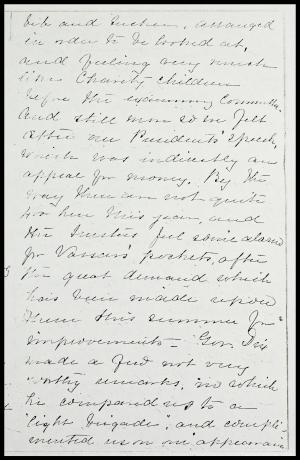 bib and tucker, arranged
in order to be looked at,
and feeling very much
like Charity children
before the examining Committee.
And still more so we felt
after our President's speech,
which was indirectly an
appeal for money. By the
way there are not quite
here this year, and
the trustees feel some alarm
for Vassar's pockets, after
the great demand which
has been made upon
them this summer for
improvements - Gov. Dix
made a few not very
worthy remarks, in which
he compared us to a
"light brigade", and compli-
mented us on our appearance